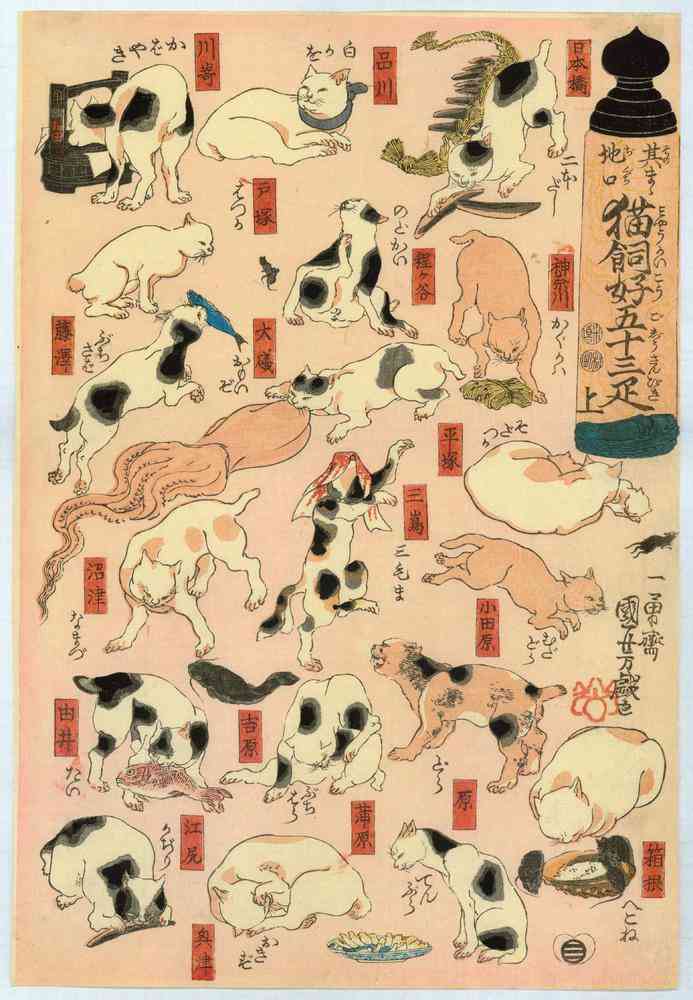 其まゝ地口
猫飼好五十三疋
みやうかいこうごじうさんびき
上
日本橋
二本だし
品川
白かを
川嵜
かばやき
神奈川
かぐかは
程ヶ谷
のどかい
戸塚
はつか
藤澤
ぶちさば
平塚
そだつか
大礒
おもいぞ
小田原
むだどら
箱根
へこね
三嶌
三毛ま
沼津
なまづ
原
どら
吉原
ぶちはら
蒲原
てんぷら
由井
たい
興津
おきず
江尻
かぢり
一勇齋
國芳戯画